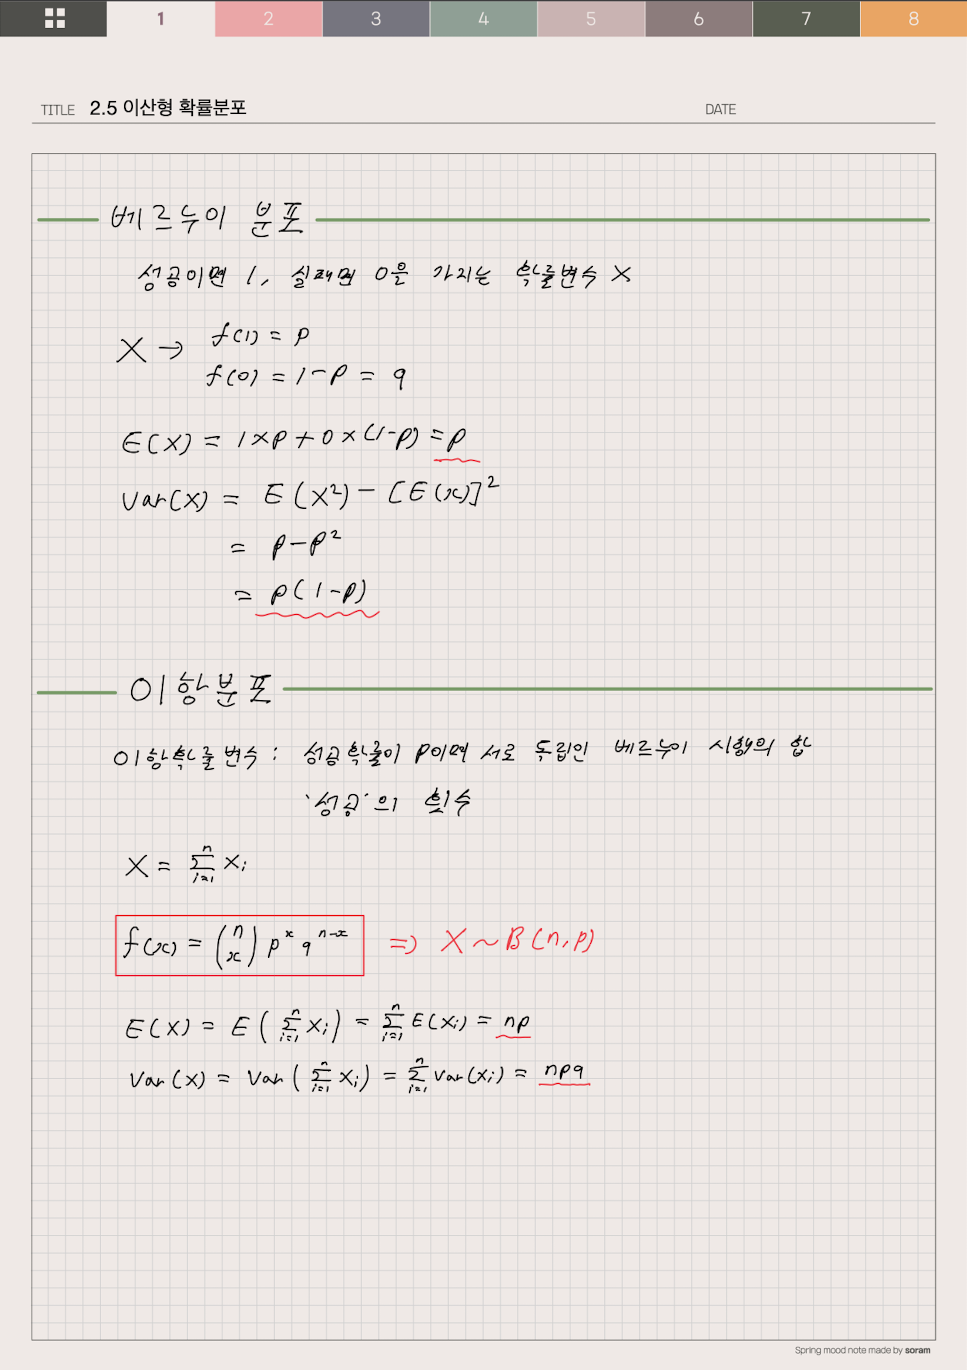 1 2 3 4 5 6 7 8
TITLE 2.5 이산형 확률분포 DATE
베르누이 분포
성공이면 1, 실패면 0을 가지는 확률변수 X
X → f(1) = p
f(0) = 1-p = q
E(X) = 1×p + 0×(1-p) = p
Var(X) = E(X²) - [E(x)]²
= p-p²
= p(1-p)
이항분포
이항확률변수 : 성공확률이 p이며 서로 독립인 베르누이 시행의 합
'성공'의 횟수
X = Σⁿᵢ₌₁ Xᵢ
f(x) = (n x) pˣ qⁿ⁻ˣ ⇒ X ~ B(n, p)
E(X) = E(Σⁿᵢ₌₁ Xᵢ) = Σⁿᵢ₌₁ E(Xᵢ) = np
Var(X) = Var(Σⁿᵢ₌₁ Xᵢ) = Σⁿᵢ₌₁ Var(Xᵢ) = npq
Spring mood note made by soram